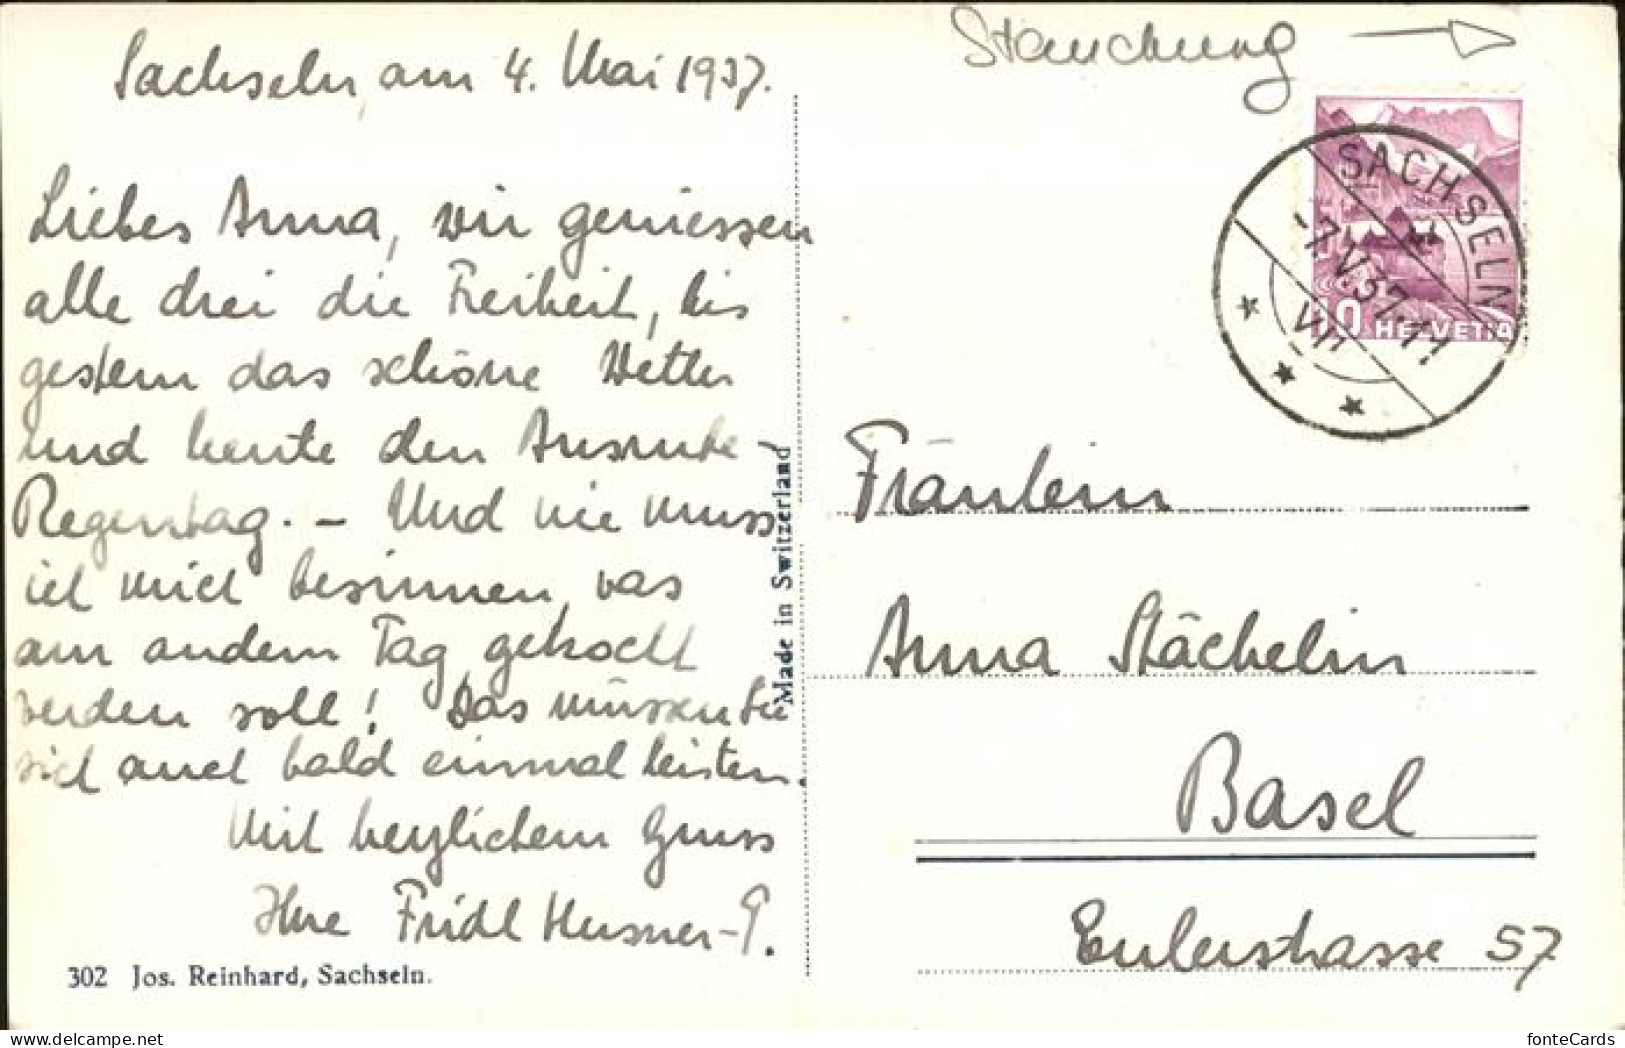 Sachseln, am 4. Mai 1937.
Liebes Anna, wir geniessen
alle drei die Freiheit, bis
gestern das schöne Wetter
und heute den Ausruhe-
Regentag. – Und nie muss
ich mich besinnen, was
am andern Tag gekocht
werden soll! Das müssen Sie
sich auch bald einmal leisten.
Mit herzlichem Gruss
Ihre Fridl Heusner-P.
302 Jos. Reinhard, Sachseln.
Made in Switzerland
Stauchung
SACHSELN
-7.V.37.11
VII
10 HELVETIA
Fräulein
Anna Stächelin
Basel
Eulerstrasse 57
fonteCards